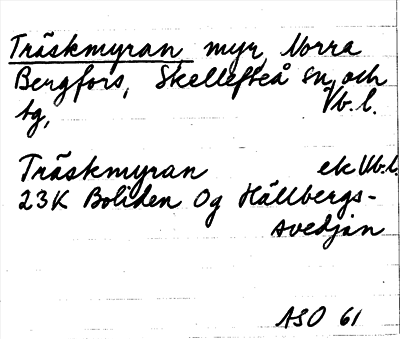 Träskmyran myr, Norra
Bergfors, Skellefteå sn, och
tg, Vb. l.
Träskmyran ek Vb. l.
23K Boliden Og Hällbergs-
svedjan
ASO 61